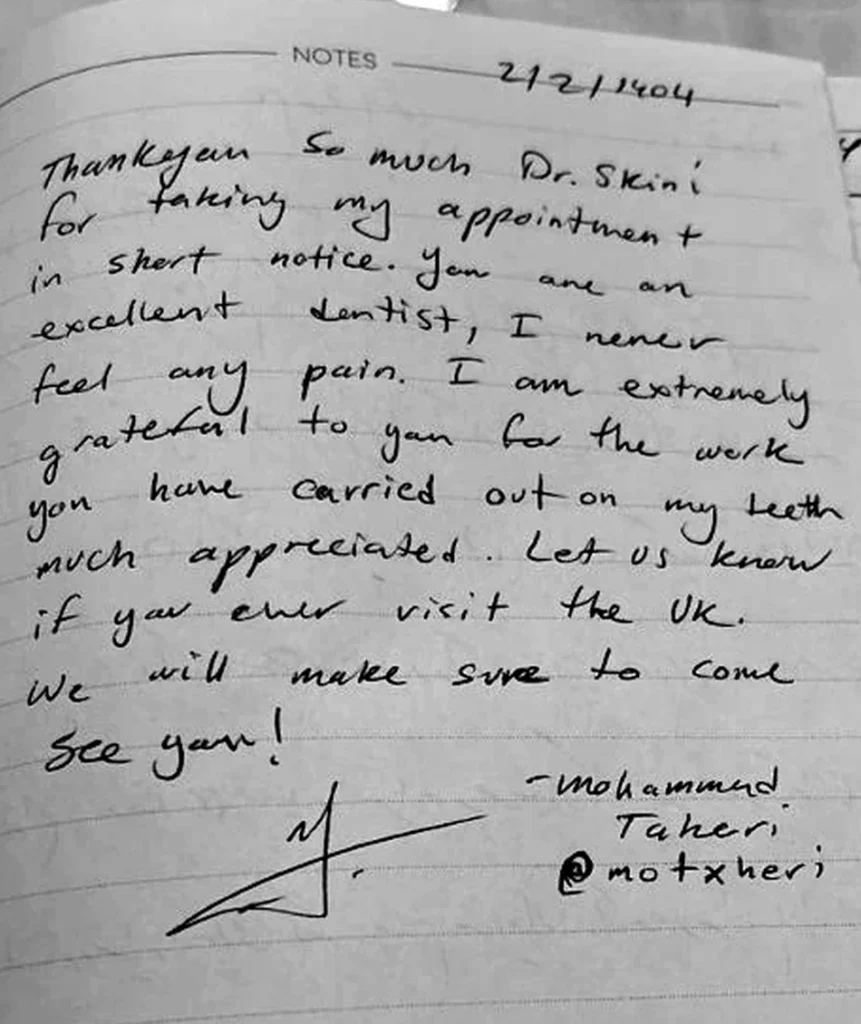 NOTES 2/2/1404
Thankyou so much Dr. Skini
for taking my appointment
in short notice. You are an
excellent dentist, I never
feel any pain. I am extremely
grateful to you for the work
you have carried out on my teeth
much appreciated. Let us know
if you ever visit the UK.
We will make sure to come
see you!
-Mohammed
Taheri
@motxheri